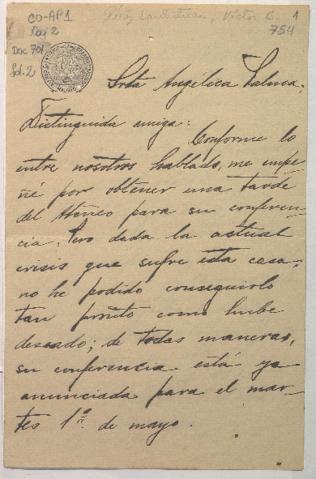 CO-AP1
Caj 2
Doc 70/
Sol. 2
Víctor E.
1
754
Srta Angélica Palma.
Distinguida amiga:
Conforme lo
entre nosotros hablado, me empe-
ñé por obtener una tarde
del Ateneo para su conferen-
cia. Pero dada la actual
crisis que sufre esta casa,
no he podido conseguirlo
tan pronto como hube
deseado; de todas maneras,
su conferencia está ya
anunciada para el mar-
tes 1º. de mayo.